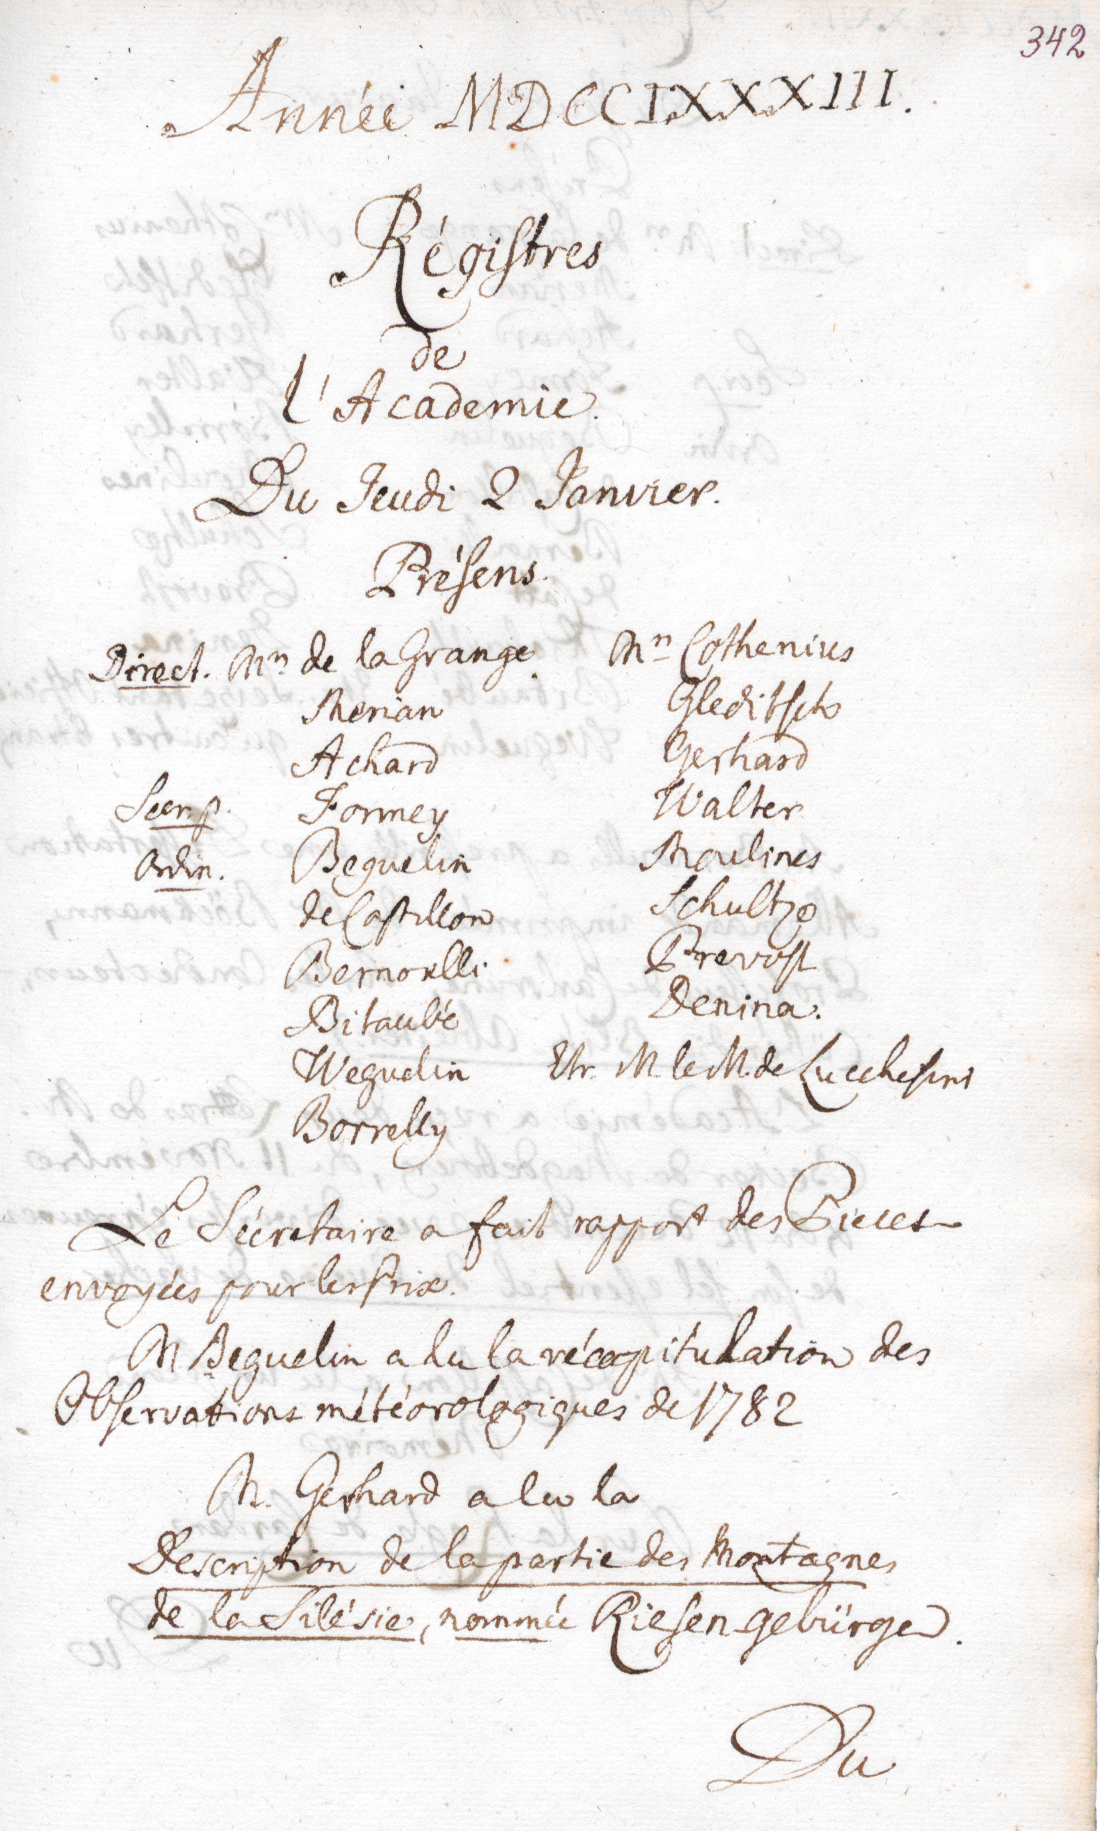 342
Année MDCCLXXXIII.
Régistres
de
l'Academie.
Du Jeudi 2 Janvier.
Présens.
Direct. Mrs de la Grange
Merian
Achard
Secr. p. Formey
Ordin. Beguelin
de Castillon
Bernoulli
Bitaubé
Weguelin
Borrelly
Mrs Cothenius
Gleditsch
Gerhard
Walter
Moulines
Schultze
Prevost
Denina.
Etr. M. le M. de Lucchesini
Le Sécretaire a fait rapport des Pieces
envoyées pour les Prix.
M Beguelin a lu la récapitulation des
Observations météorologiques de 1782
M. Gerhard a lu la
Description de la partie des Montagnes
de la Silésie, nommée Riesengebürge.
Du